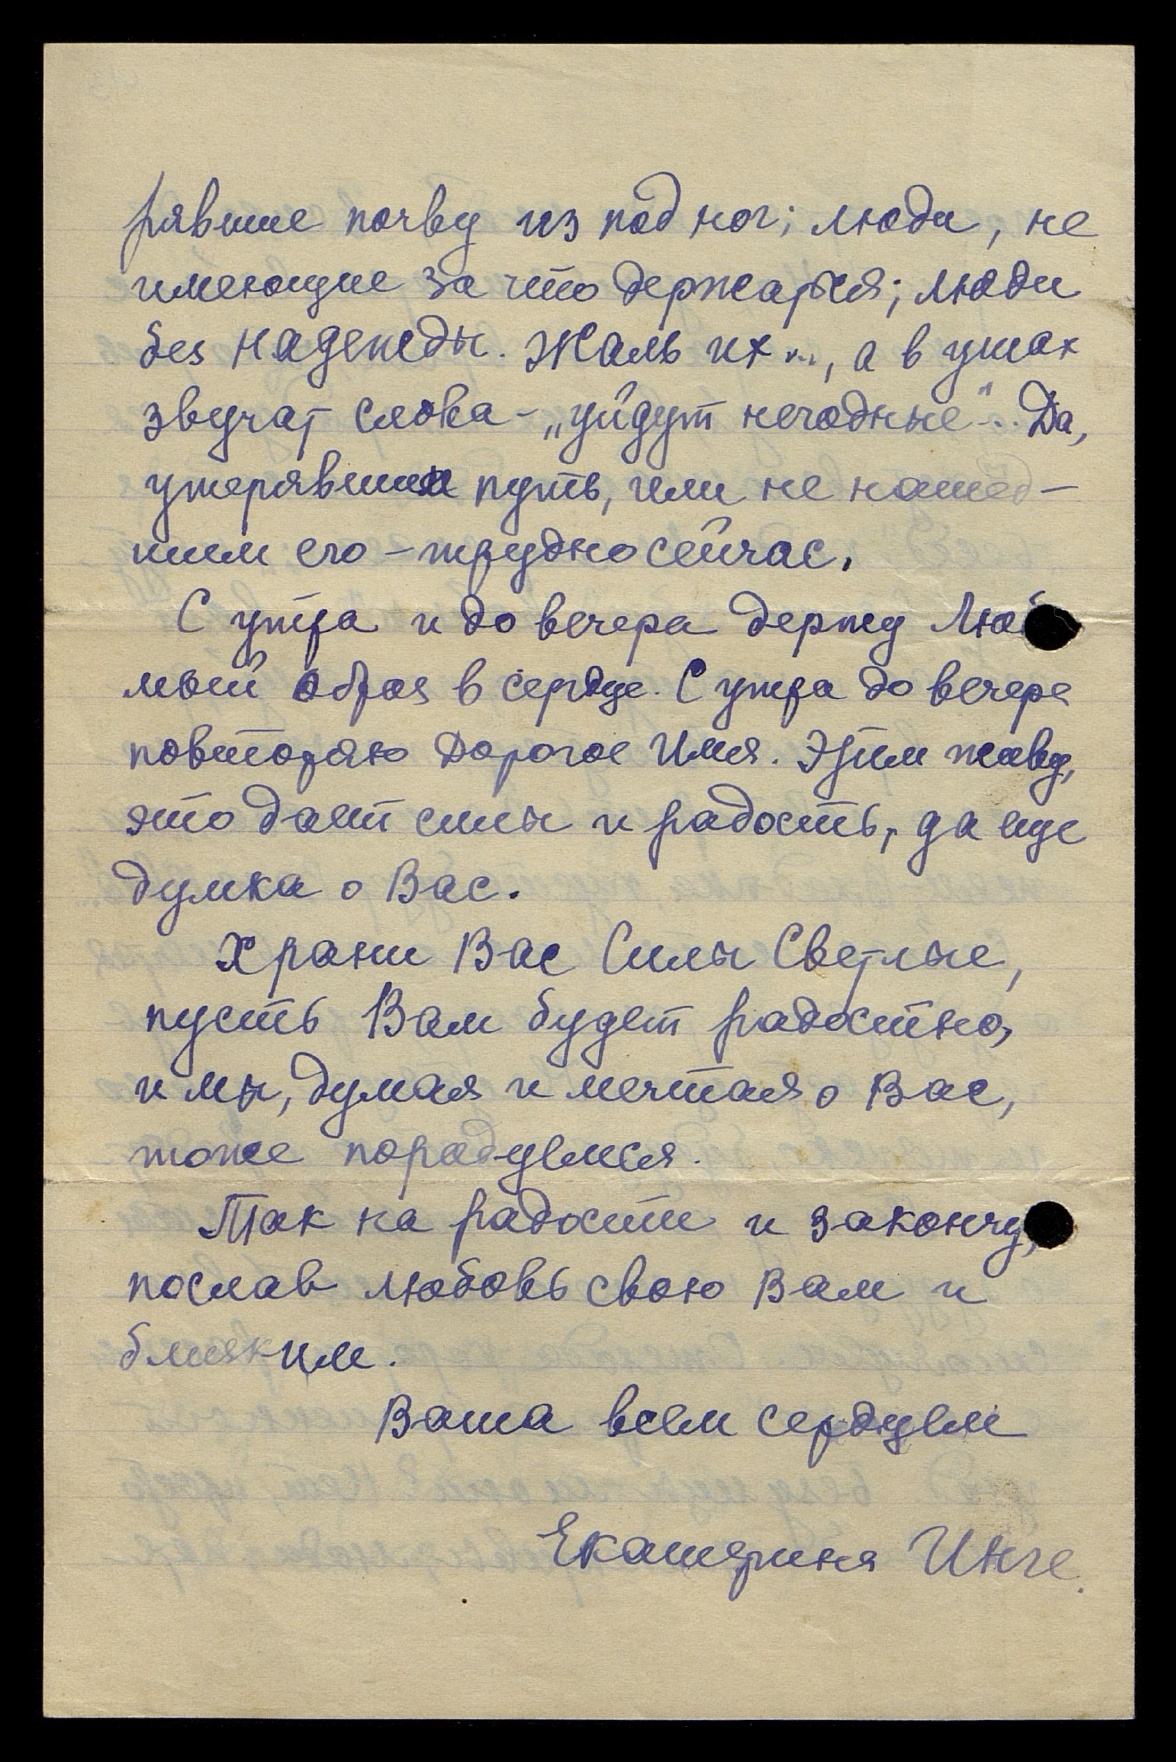 рявшие почву из под ног; люди, не
имеющие за что держаться; люди
без надежды. Жаль их..., а в ушах
звучат слова – „уйдут негодные“... Да,
утерявшим путь, или не нашед-
шим его – трудно сейчас.
С утра и до вечера держу Люби
мый образ в сердце. С утра до вечера
повторяю Дорогое Имя. Этим живу,
это дает силы и радость, да еще
думка о Вас.
Храни Вас Силы Светлые,
пусть Вам будет радостно,
и мы, думая и мечтая о Вас,
тоже порадуемся.
Так на радости и закончу,
послав любовь свою Вам и
близким.
Ваша всем сердцем
Екатерина Инге.